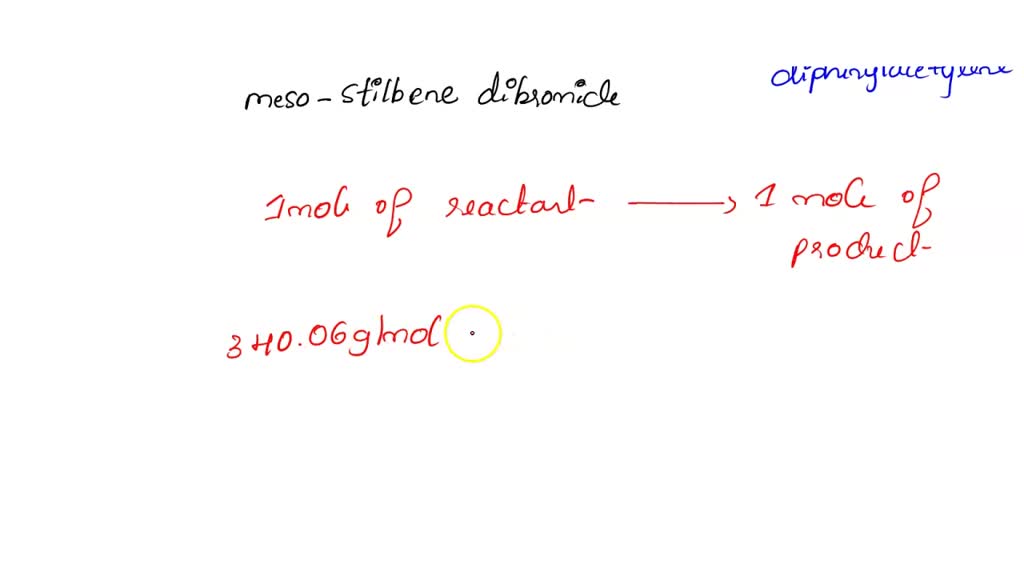 meso-stilbene dibromide
diphenylacetylene
1 mole of reactant → 1 mole of
product
340.06 g/mol